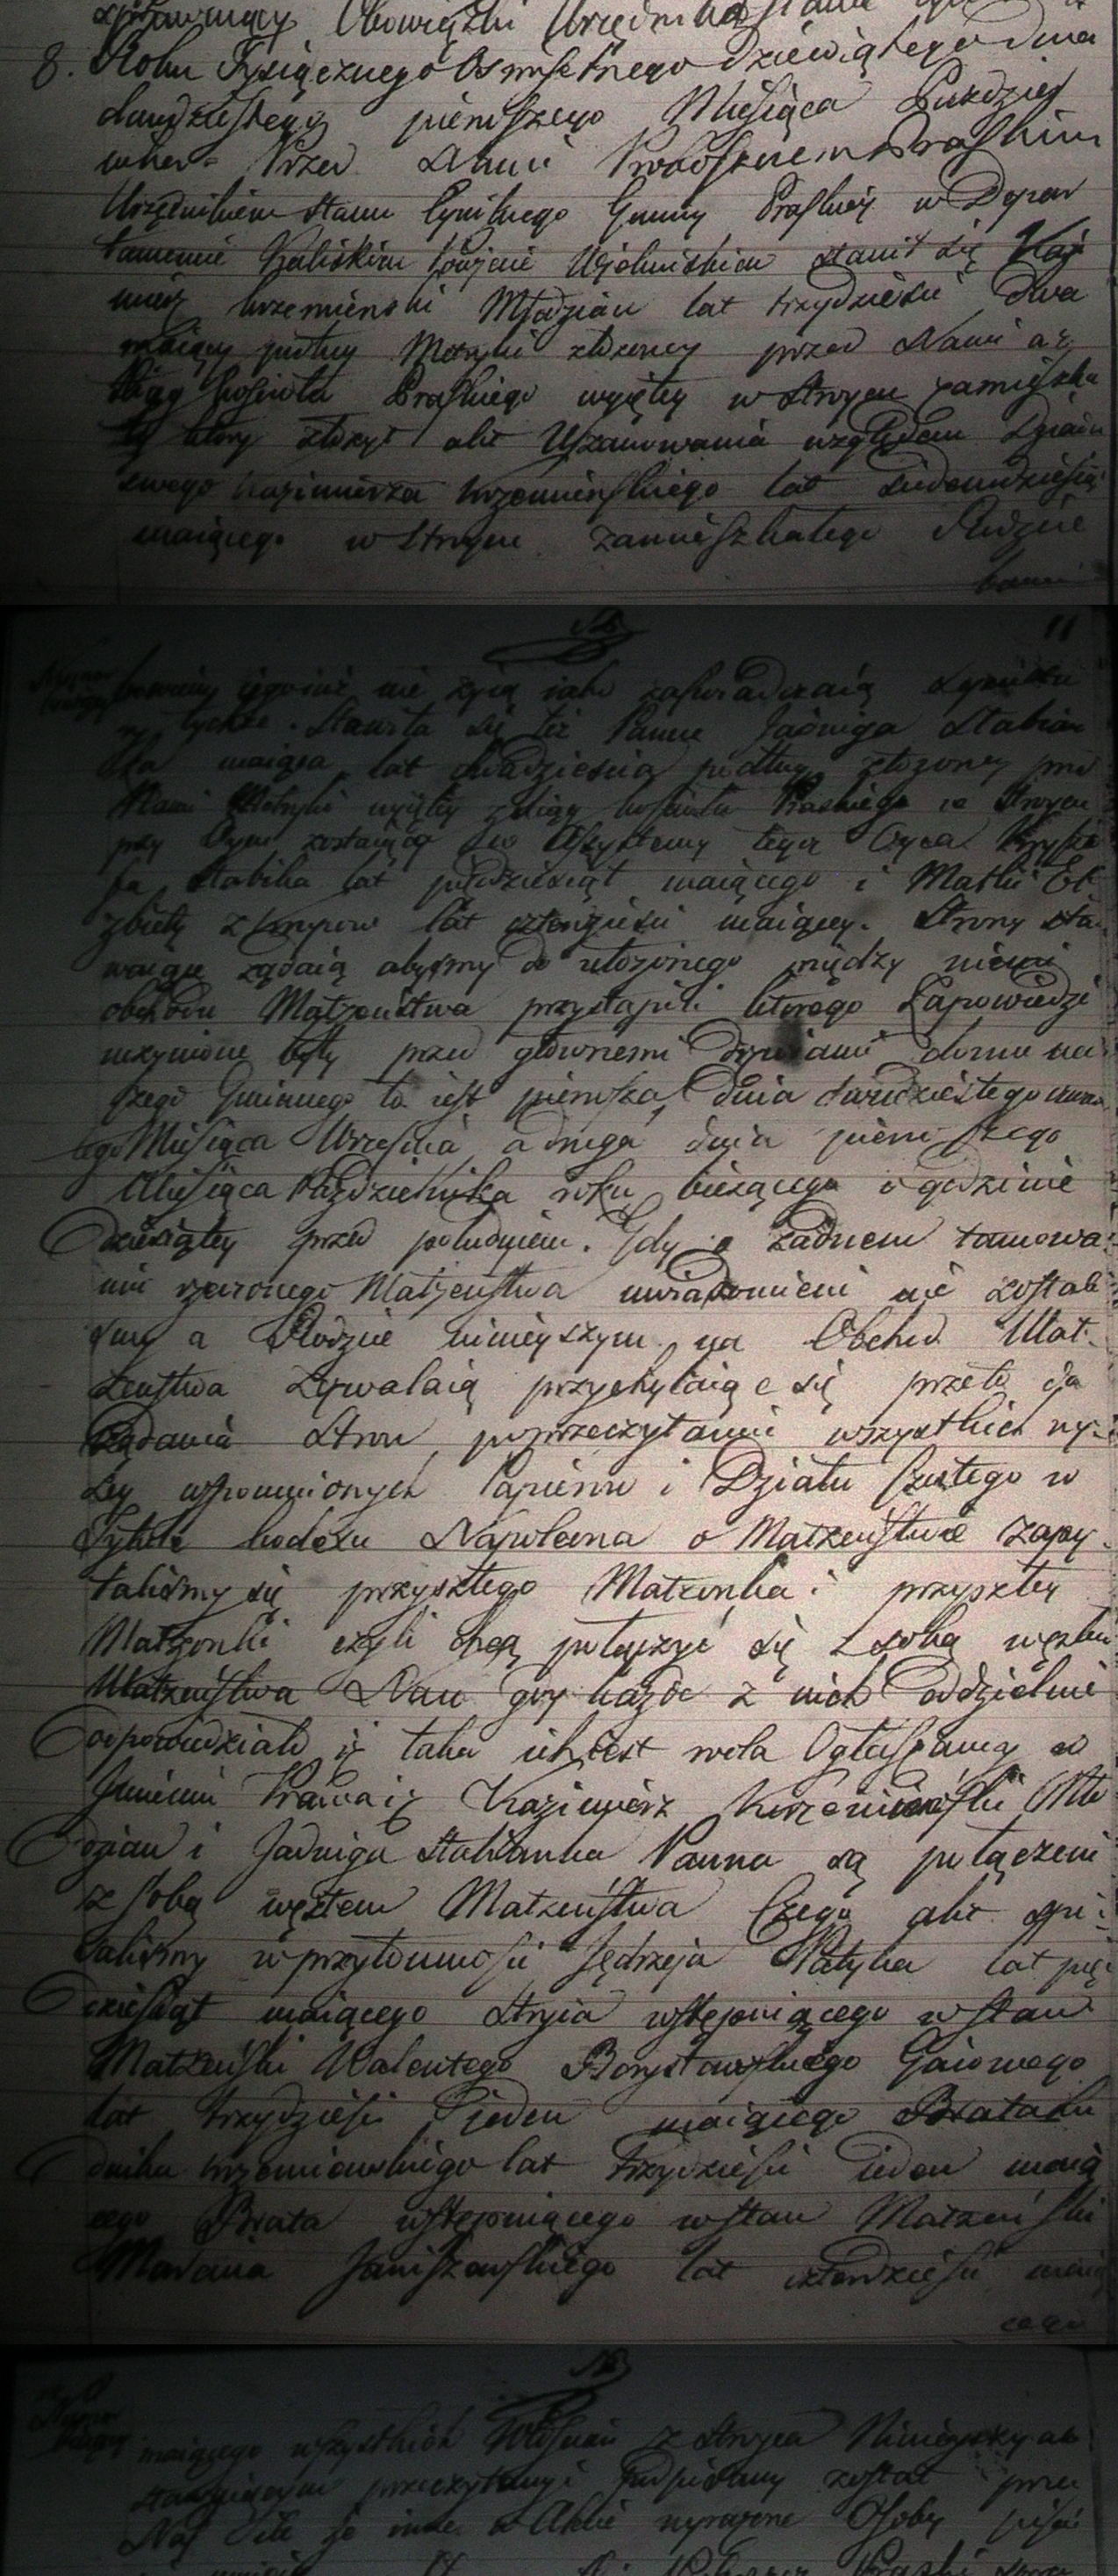 sprawuiący Obowiązki Urzędnika Stanu
8. Roku Tysiącznego Osmsetnego Dziewiątego Dnia
dwudziestego pierwszego Miesiąca Paździer
nika Przed Nami Proboszczem Praskim
Urzędnikiem Stanu Cywilnego Gminy Praskiey w Depar
tamencie Kaliskim Powiecie Wieluńskim stawił się Kazi
mierz Krzemieński Młodzian lat trzydzieści dwa
maiący podług Metryki złożoney przed Nami a z
Xiąg Kościoła Praskiego wyiętey w Stroycu zamieszka
ły który złożył akt Uszanowania względem Dziada
swego Kazimierza Krzemieńskiego lat siedemdziesiąt
maiącego w Stroycu zamieszkałego Rodzice
bowiem
bowiem iego iuż nie żyią iako zaświadczaią
tychże. Stawiła się też Panna Jadwiga Stabian
ka maiąca lat dwadzieścia podług złożoney przed
Nami Metryki wyiętey z Xiąg kościoła Praskiego w Stroycu
przy Oycu zostaiąca w Assystencyi tegoż Oyca Krysto
fa Stabika lat pięćdziesiąt maiącego i Matki El
zbiety z lat czterdzieści maiącey. Strony sta
waiące żądaią abyśmy do ułożonego między niemi
obchodu Małżeństwa przystąpili którego Zapowiedzi
uczynione były przed głownemi drzwiami domu na
szego Gminnego to iest pierwsza Dnia dwudziestego czwar
tego Miesiąca Września a druga dnia pierwszego
Miesiąca Października roku bieżącego o godzinie
Dziewiątey przed południem. Gdy o żadnem tamowa
niu rzeczonego Małżeństwa uwiadomieni nie zostali
śmy a Rodzice ninieyszym na Obchod Mał
żeństwa zezwalaią przychylaiąc się przeto do
żądania Stron po przeczytaniu wszystkich wy
żey wspomnionych Papierow i Działu szóstego w
Tytule kodexu Napoleona o Małżeństwie zapy
taliśmy się przyszłego Małżonka i przyszłey
Małżonki czyli chcą połączyć się z sobą węzłem
Małżeństwa Na co gdy każde z nich oddzielnie
odpowiedziało iż taka ich iest wola Ogłaszamy w
Imieniu Prawa iż Kazimierz Krzemieński Mło
dzian i Jadwiga Stabianka Panna są połączeni
z sobą węzłem Małżeństwa Czego akt spi
saliśmy w przytomności Jędrzeja Patyka lat pięć
dziesiąt maiącego Stryia wstępuiącego w Stan
Małżeński Walentego Borysławskiego Gaiowego
lat trzydzieści jeden maiącego Brata
Krzemieńskiego lat trzydzieści ieden maią
cego Brata wstępuiącego w Stan Małżeński
Marcina Janiszewskiego lat czterdzieści maią
cego
maiącego wszystkich Włościan z Stroyca Ninieyszy akt
stawaiącym przeczytany i podpisany został przez
Nas Gdyż że inne w Akcie wyrażone Osoby pisać